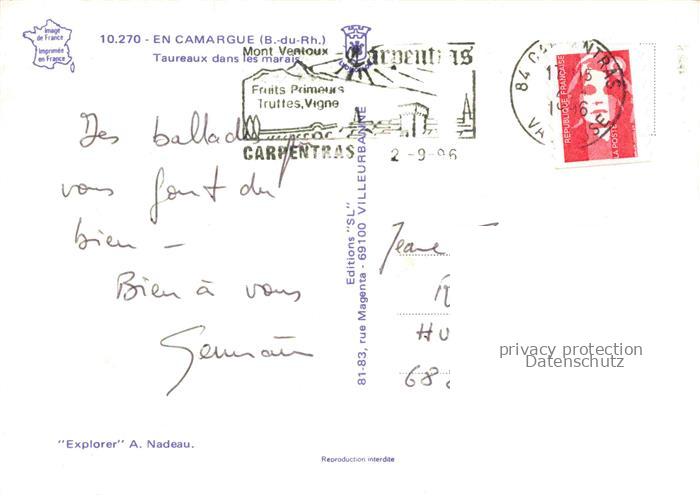 Image
de France
Imprimée
en France
10.270 - EN CAMARGUE (B.-du-Rh.)
Taureaux dans les marais
Mont Ventoux
Carpentras
Fruits Primeurs
Truffes, Vigne
CARPENTRAS
2 -9-96
84 CARPENTRAS
VAUCLUSE
RÉPUBLIQUE FRANÇAISE
LA POSTE
Des ballades
vous font du
bien -
Bien à vous
Germain
Editions "SL"
81-83, rue Magenta - 69100 VILLEURBANNE
Jeanne
HU
68
privacy protection
Datenschutz
"Explorer" A. Nadeau.
Reproduction interdite